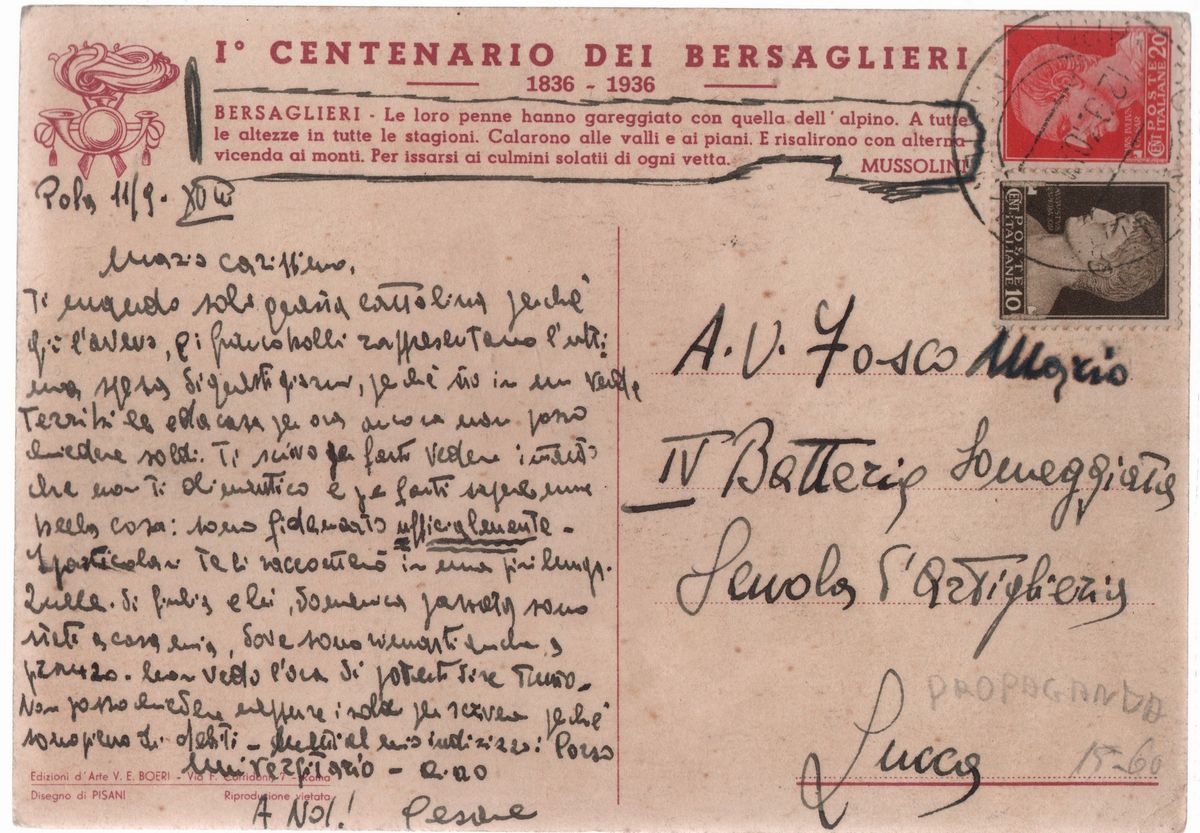 I° CENTENARIO DEI BERSAGLIERI
1836 - 1936
BERSAGLIERI - Le loro penne hanno gareggiato con quella dell'alpino. A tutte
le altezze in tutte le stagioni. Calarono alle valli e ai piani. E risalirono con alterna
vicenda ai monti. Per issarsi ai culmini solatii di ogni vetta.
MUSSOLINI
POSTE ITALIANE
CENT 20
POSTE ITALIANE
CENT 10
Pola 11/9 - XVIII
Mario carissimo,
Ti mando solo questa cartolina perché
già l'avevo, e i francobolli rappresentano l'ulti-
ma spesa di questi giorni, perché sto in un verde
terribile e da casa per ora ancora non posso
chiedere soldi. Ti scrivo per farti vedere intanto
che non ti dimentico e per farti sapere una
bella cosa: sono fidanzato ufficialmente -
I particolari te li racconterò in una più lunga.
Quella di Giulia e lei, domenica passata sono
stati a casa mia, dove sono rimasti anche a
pranzo. Non vedo l'ora di poterti dire tutto -
Non posso chiedere neppure i soldi per scrivere perché
sono pieno di debiti - Metti al mio indirizzo: Corso
Universitario - Ciao
A NOI! Cesare
A.U. Fosco Mario
IV Batteria Someggiata
Scuola d'Artiglieria
Lucca
PROPAGANDA
15-60
Edizioni d'Arte V. E. BOERI - Via F. Corridoni, 7 - Roma
Disegno di PISANI Riproduzione vietata